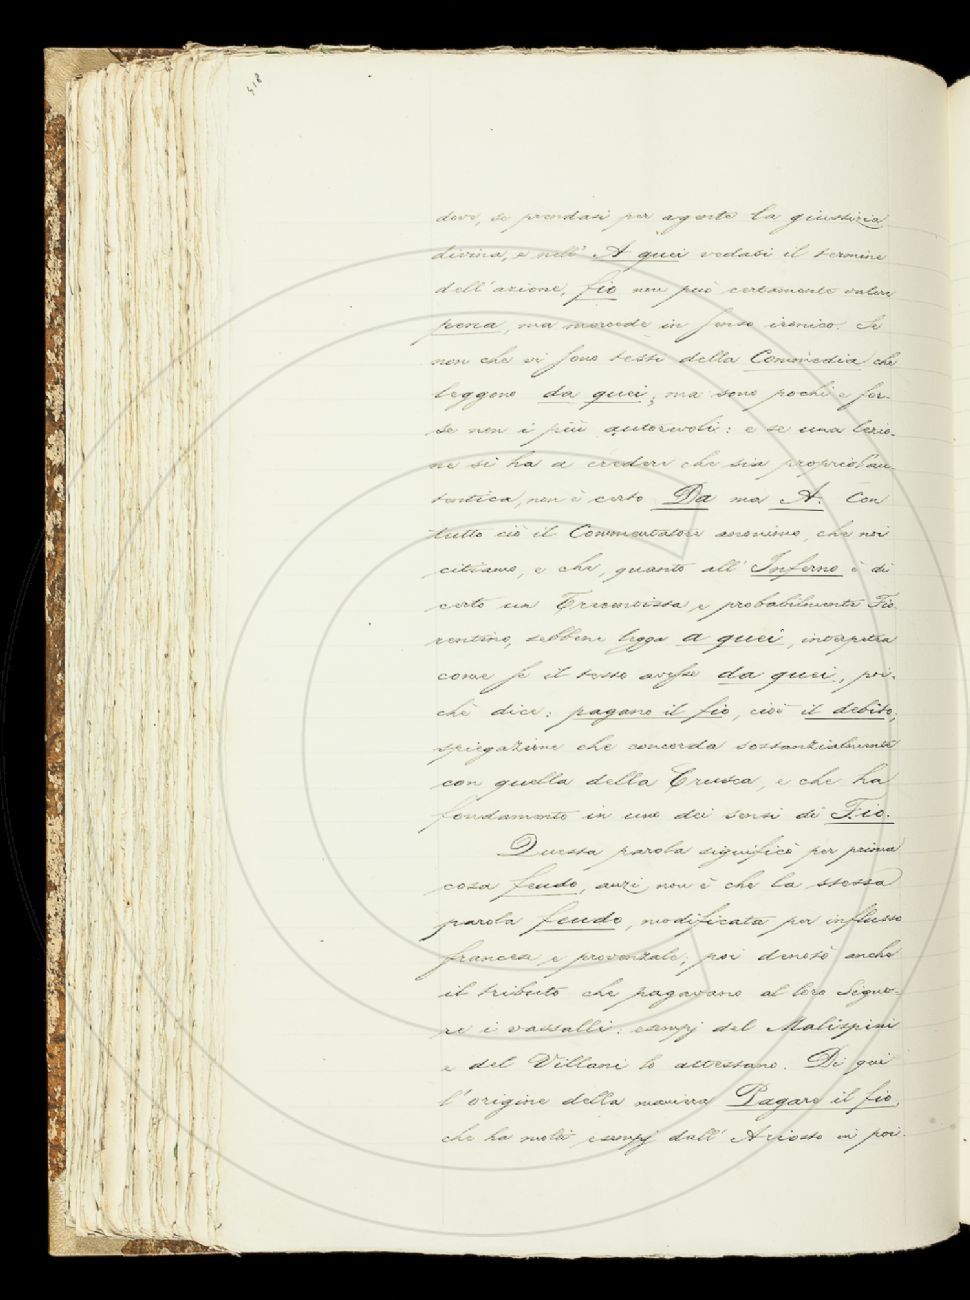 518
deve, se prendasi per agente la giustizia
divina, e nell' A quei vedasi il termine
dell'azione, fio non può certamente valere
pena, ma mercede in senso ironico. Se
non che vi sono testi della Commedia che
leggono da quei; ma sono pochi e for-
se non i più autorevoli: e se una lezio-
ne si ha a credere che sia propriol'au-
tentica, non è certo Da ma A. Con
tutto ciò il Commentatore anonimo, che noi
citiamo, e che, quanto all' Inferno è di
certo un Trecentista, e probabilmente Fio-
rentino, sebbene legga a quei, interpetra
come se il testo avesse da quei, poi-
chè dice: pagano il fio, cioè il debito;
spiegazione che concorda sostanzialmente
con quella della Crusca, e che ha
fondamento in uno dei sensi di Fio.
Questa parola significò per prima
cosa feudo, anzi non è che la stessa
parola feudo, modificata per influsso
francese e provenzale; poi denotò anche
il tributo che pagavano al loro Signo-
re i vassalli: esempj del Malispini
e del Villani lo attestano. Di qui
l'origine della maniera Pagare il fio,
che ha molti esempj dall' Ariosto in poi.